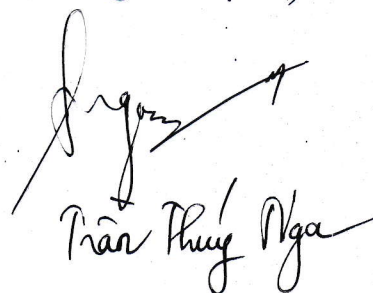 Trần Thuý Nga